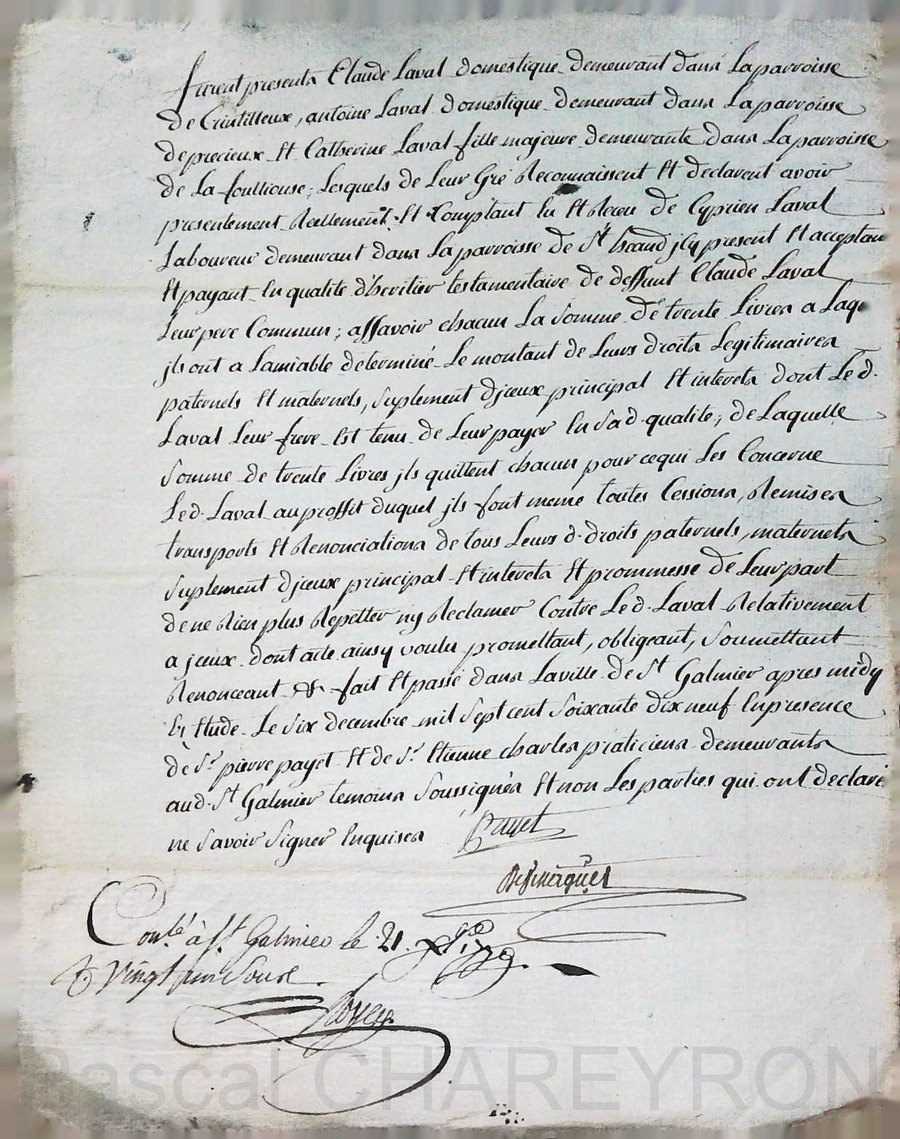 furent presents Claude Laval domestique demeurant dans La parroisse
de Crintilleux, antoine Laval domestique demeurant dans La parroisse
de precieux Et Catherine Laval fille majeure demeurante dans La parroisse
de La foulliouse; Lesquels de Leur Gré Reconnaissent Et declarent avoir
presentement Reellement Et Comptant Eu Et Receu de Cyprien Laval
Laboureur demeurant dans La parroisse de St heand jcy present Et acceptan
Et payant En qualité d'heritier testamentaire de deffunt Claude Laval
Leur pere Commun; assavoir chacun La Somme de trente Livres a Laq
jls ont a Lamiable determiné Le montant de Leurs droits Legitimaires
paternels Et maternels, Suplement d'jceux principal Et interets dont Le d.
Laval Leur frere Est tenu de Leur payer En Sa d. qualité; de Laquelle
Somme de trente Livres jls quittent chacun pour ce qui Les Concerne
Le d. Laval au proffit duquel jls font meme toutes Cessions, Remises
transports Et Renonciations de tous Leurs d. droits paternels, maternels
Suplement d'jceux principal Et interets Et prommesse de Leur part
de ne Rien plus Repetter ny Reclamer Contre Le d. Laval Relativement
a jceux. dont acte ainsy voulu promettant, obligeant, Soumettant
Renonceant &c fait Et passé dans La ville de St Galmier apres midy
Et Etude Le Six decembre mil Sept cent Soixante dix neuf En presence
de Sr. pierre payet Et de Sr. Etienne charles praticiens demeurants
au d. St Galmier temoins Soussignés Et non Les parties qui ont declaré
ne Savoir Signer Enquises Payet
Conlé à St. Galmier le 21. xbre 1779.
R vingt un Sous.
Pascal CHAREYRON